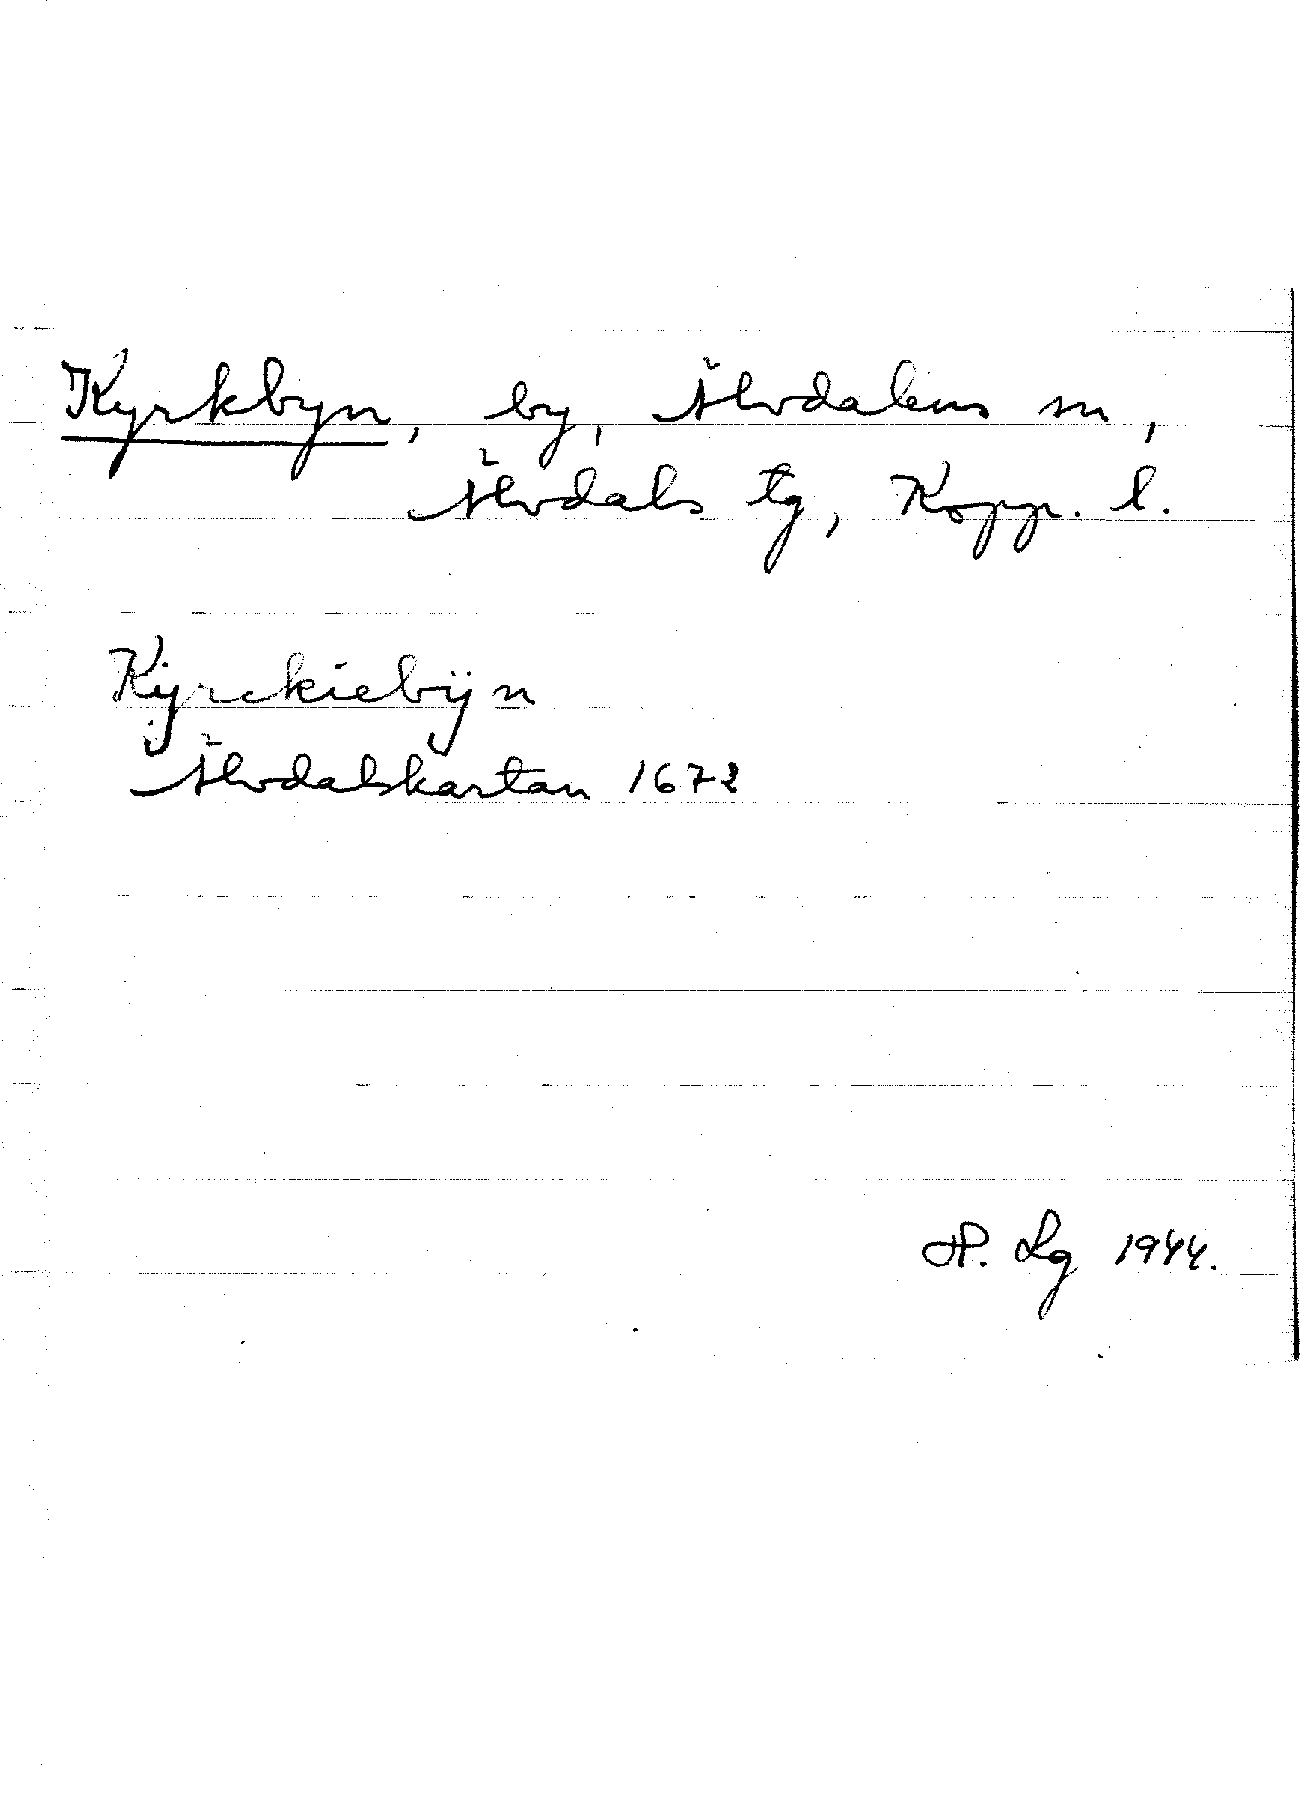 Kyrkbyn, by, Älvdalens sn,
Älvdals tg, Kopp. l.
Kÿrckiebÿn
Älvdalskartan 1672
H. Lg 1944.